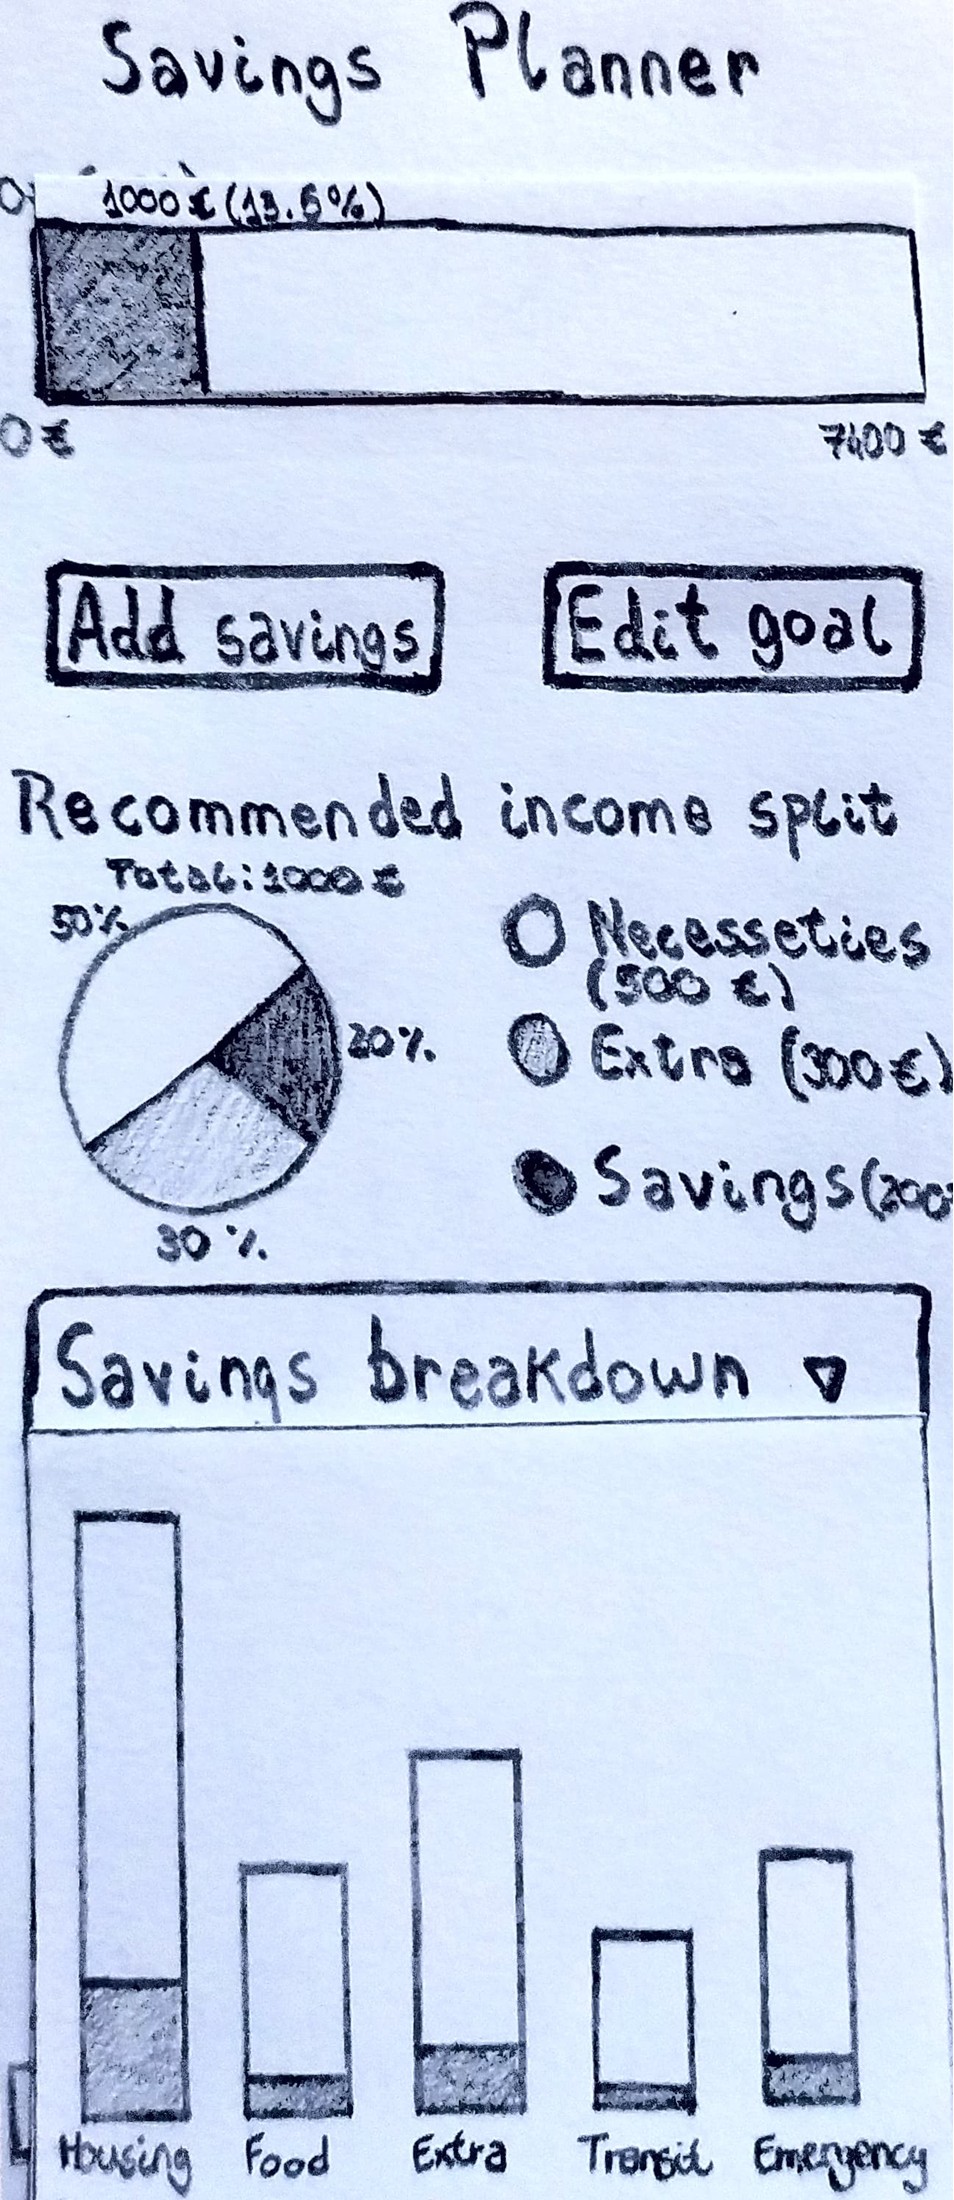 Savings Planner
1000 € (13.5%)
0 €
7400 €
Add savings
Edit goal
Recommended income split
Total: 1000 €
50%
20%
30 %
Necesseties
(500 €)
Extra (300 €)
Savings (200
Savings breakdown
Housing
Food
Extra
Transit
Emergency